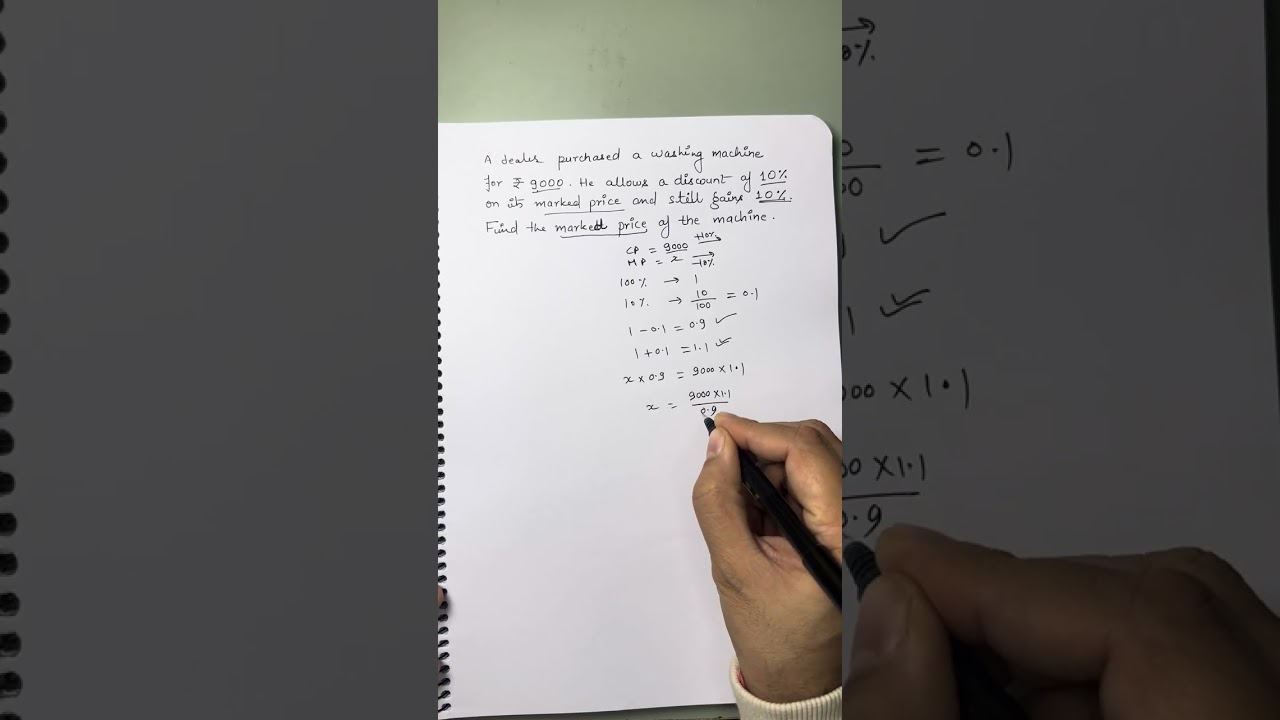 A dealer purchased a washing machine
for ₹ 9000. He allows a discount of 10%
on its marked price and still gains 10%.
Find the marked price of the machine.
CP = 9000 +10%
MP = x -10%
100% → 1
10% → 10/100 = 0.1
1 - 0.1 = 0.9 ✓
1 + 0.1 = 1.1 ✓
x × 0.9 = 9000 × 1.1
x = 9000 × 1.1 / 0.9